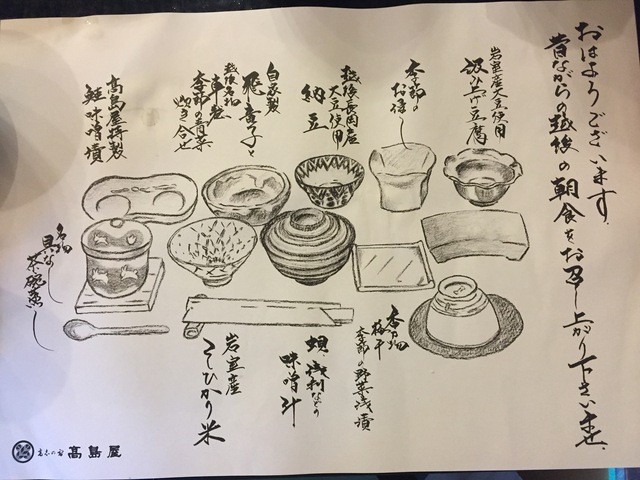 おはようございます。
昔ながらの越後の朝食をお召し上がり下さいませ。
岩室産大豆使用
汲み上げ豆腐
季節の
お浸し
越後長岡産
大豆使用
納豆
自家製
飛竜子と
越後名物
車麩
季節の青菜
炊き合せ
高島屋特製
鮭味噌漬
名物
具なし
茶碗蒸し
香の物
梅干
季節の野菜浅漬
蜆、浅利などの
味噌汁
岩室産
こしひかり米
髙島屋